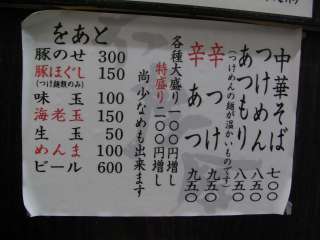 中華そば 七〇〇
つけめん 八五〇
あつもり 八五〇
(つけめんの麺が温かいものです)
辛つけ 九五〇
辛あつ 九五〇
各種大盛り一〇〇円増し
特盛り二〇〇円増し
尚少なめも出来ます
をあと
豚のせ 300
豚ほぐし 150
(つけ麺類のみ)
味玉 100
海老玉 150
生玉 50
めんま 100
ビール 600